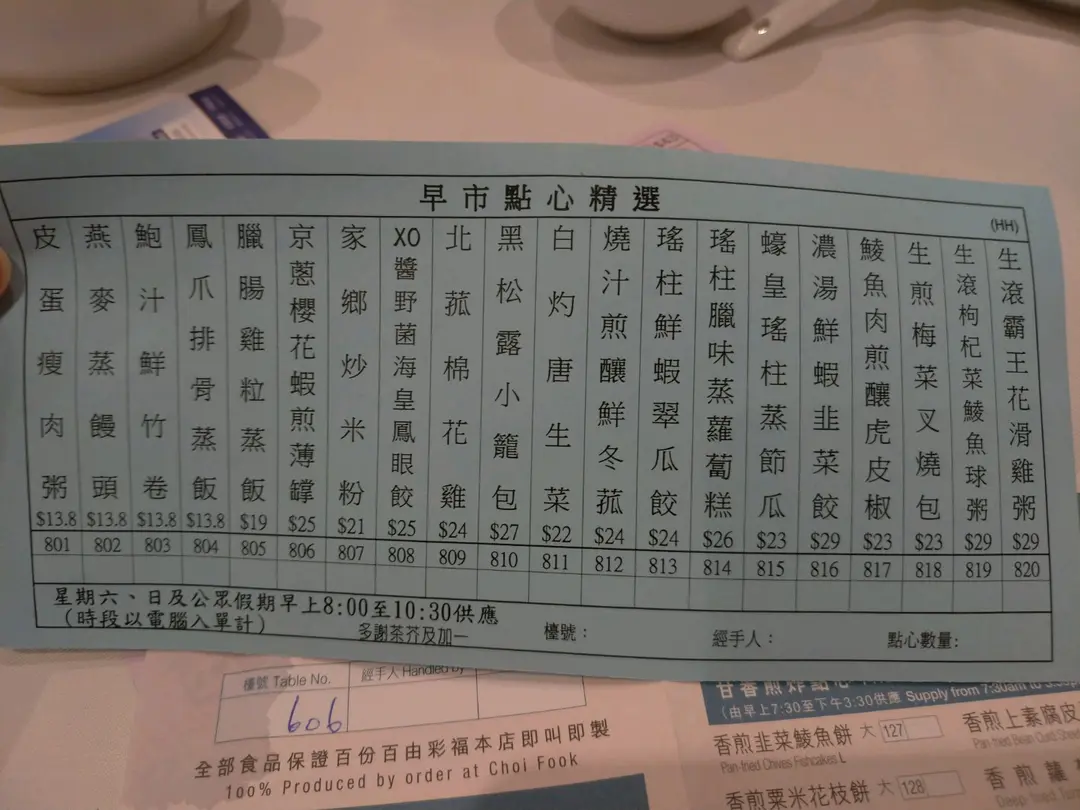 早市點心精選
(HH)
皮蛋瘦肉粥
燕麥蒸饅頭
鮑汁鮮竹卷
鳳爪排骨蒸飯
臘腸雞粒蒸飯
京蔥櫻花蝦煎薄罉
家鄉炒米粉
XO醬野菌海皇鳳眼餃
北菰棉花雞
黑松露小籠包
白灼唐生菜
燒汁煎釀鮮冬菰
瑤柱鮮蝦翠瓜餃
瑤柱臘味蒸蘿蔔糕
蠔皇瑤柱蒸節瓜
濃湯鮮蝦韭菜餃
鯪魚肉煎釀虎皮椒
生煎梅菜叉燒包
生滾枸杞菜鯪魚球粥
生滾霸王花滑雞粥
$13.8 $13.8 $13.8 $13.8 $19 $25 $21 $25 $24 $27 $22 $24 $24 $26 $23 $29 $23 $23 $29 $29
801 802 803 804 805 806 807 808 809 810 811 812 813 814 815 816 817 818 819 820
星期六、日及公眾假期早上8:00至10:30供應
(時段以電腦入單計)
多謝茶芥及加一
檯號：
經手人：
點心數量:
檯號 Table No.
經手人 Handled by
606
全部食品保證百份百由彩福本店即叫即製
100% Produced by order at Choi Fook
(由早上7:30至下午3:30供應 Supply from 7:30am to
香煎韭菜鯪魚餅 大 127
Pan-fried Chives Fishcakes L
香煎上素腐皮
Pan-fried Bean Curd
香煎粟米花枝餅 大 128
香煎蘿